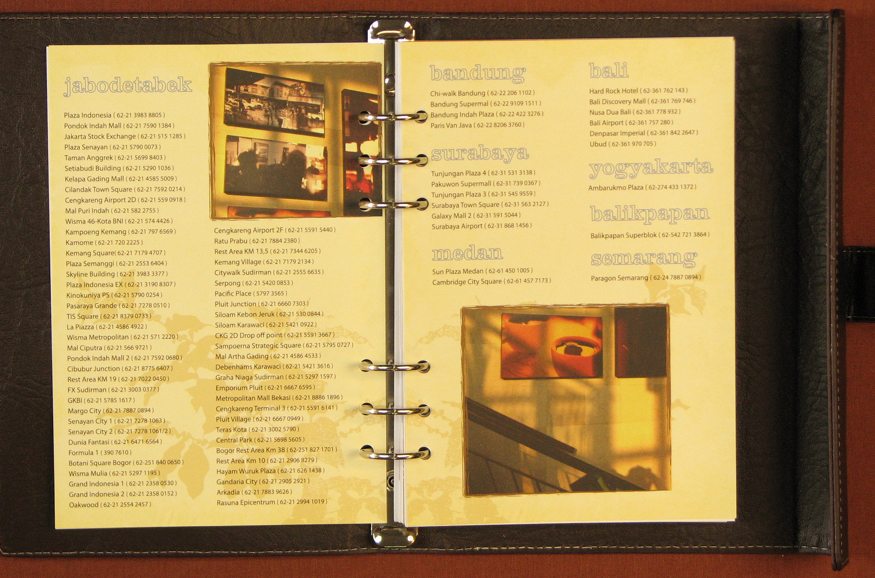 jabodetabek
Plaza Indonesia ( 62-21 3983 8805 )
Pondok Indah Mall ( 62-21 7590 1384 )
Jakarta Stock Exchange ( 62-21 515 1285 )
Plaza Senayan ( 62-21 5790 0073 )
Taman Anggrek ( 62-21 5699 8403 )
Setiabudi Building ( 62-21 5290 1036 )
Kelapa Gading Mall ( 62-21 4585 5009 )
Cilandak Town Square ( 62-21 7592 0214 )
Cengkareng Airport 2D ( 62-21 559 0918 )
Mal Puri Indah ( 62-21 582 2755 )
Wisma 46-Kota BNI ( 62-21 574 4426 )
Kampoeng Kemang ( 62-21 797 6569 )
Kamome ( 62-21 720 2225 )
Kemang Square( 62-21 7179 4707 )
Plaza Semanggi ( 62-21 2553 6404 )
Skyline Building ( 62-21 3983 3377 )
Plaza Indonesia EX ( 62-21 3190 8307 )
Kinokuniya PS ( 62-21 5790 0254 )
Pasaraya Grande ( 62-21 7278 0510 )
TIS Square ( 62-21 8379 0733 )
La Piazza ( 62-21 4586 4922 )
Wisma Metropolitan ( 62-21 571 2220 )
Mal Ciputra ( 62-21 566 9721 )
Pondok Indah Mall 2 ( 62-21 7592 0680 )
Cibubur Junction ( 62-21 8775 6407 )
Rest Area KM 19 ( 62-21 7022 0450 )
FX Sudirman ( 62-21 3003 0377 )
GKBI ( 62-21 5785 1617 )
Margo City ( 62-21 7887 0894 )
Senayan City 1 ( 62-21 7278 1063 )
Senayan City 2 ( 62-21 7278 1061/2 )
Dunia Fantasi ( 62-21 6471 6564 )
Formula 1 ( 390 7610 )
Botani Square Bogor ( 62-251 840 0650 )
Wisma Mulia ( 62-21 5297 1195 )
Grand Indonesia 1 ( 62-21 2358 0530 )
Grand Indonesia 2 ( 62-21 2358 0152 )
Oakwood ( 62-21 2554 2457 )
Cengkareng Airport 2F ( 62-21 5591 5440 )
Ratu Prabu ( 62-21 7884 2380 )
Rest Area KM 13,5 ( 62-21 7344 6205 )
Kemang Village ( 62-21 7179 2134 )
Citywalk Sudirman ( 62-21 2555 6635 )
Serpong ( 62-21 5420 0853 )
Pacific Place ( 5797 3565 )
Pluit Junction ( 62-21 6660 7303 )
Siloam Kebon Jeruk ( 62-21 530 0844 )
Siloam Karawaci ( 62-21 5421 0922 )
CKG 2D Drop off point ( 62-21 5591 3667 )
Sampoerna Strategic Square ( 62-21 5795 0727 )
Mal Artha Gading ( 62-21 4586 4533 )
Debenhams Karawaci ( 62-21 5421 3616 )
Graha Niaga Sudirman ( 62-21 5297 1597 )
Emporium Pluit ( 62-21 6667 6595 )
Metropolitan Mall Bekasi ( 62-21 8886 1896 )
Cengkareng Terminal 3 ( 62-21 5591 6141 )
Pluit Village ( 62-21 6667 0949 )
Teras Kota ( 62-21 3002 5790 )
Central Park ( 62-21 5698 5605 )
Bogor Rest Area Km 38 (62-251 827 1701 )
Rest Area Km 10 ( 62-21 2906 8279 )
Hayam Wuruk Plaza ( 62-21 626 1438 )
Gandaria City ( 62-21 2905 2921 )
Arkadia ( 62-21 7883 9626 )
Rasuna Epicentrum ( 62-21 2994 1019 )
bandung
Chi-walk Bandung ( 62-22 206 1102 )
Bandung Supermal ( 62-22 9109 1511 )
Bandung Indah Plaza ( 62-22 422 3276 )
Paris Van Java ( 62-22 8206 3760 )
surabaya
Tunjungan Plaza 4 ( 62-31 531 3138 )
Pakuwon Supermall ( 62-31 739 0367 )
Tunjungan Plaza 3 ( 62-31 545 9559 )
Surabaya Town Square ( 62-31 563 2127 )
Galaxy Mall 2 ( 62-31 591 5044 )
Surabaya Airport ( 62-31 868 1456 )
medan
Sun Plaza Medan ( 62-61 450 1005 )
Cambridge City Square ( 62-61 457 7173 )
bali
Hard Rock Hotel ( 62-361 762 143 )
Bali Discovery Mall ( 62-361 769 746 )
Nusa Dua Bali ( 62-361 778 932 )
Bali Airport ( 62-361 757 280 )
Denpasar Imperial ( 62-361 842 2647 )
Ubud ( 62-361 970 705 )
yogyakarta
Ambarukmo Plaza ( 62-274 433 1372 )
balikpapan
Balikpapan Superblok ( 62-542 721 3864 )
semarang
Paragon Semarang ( 62-24 7887 0894 )